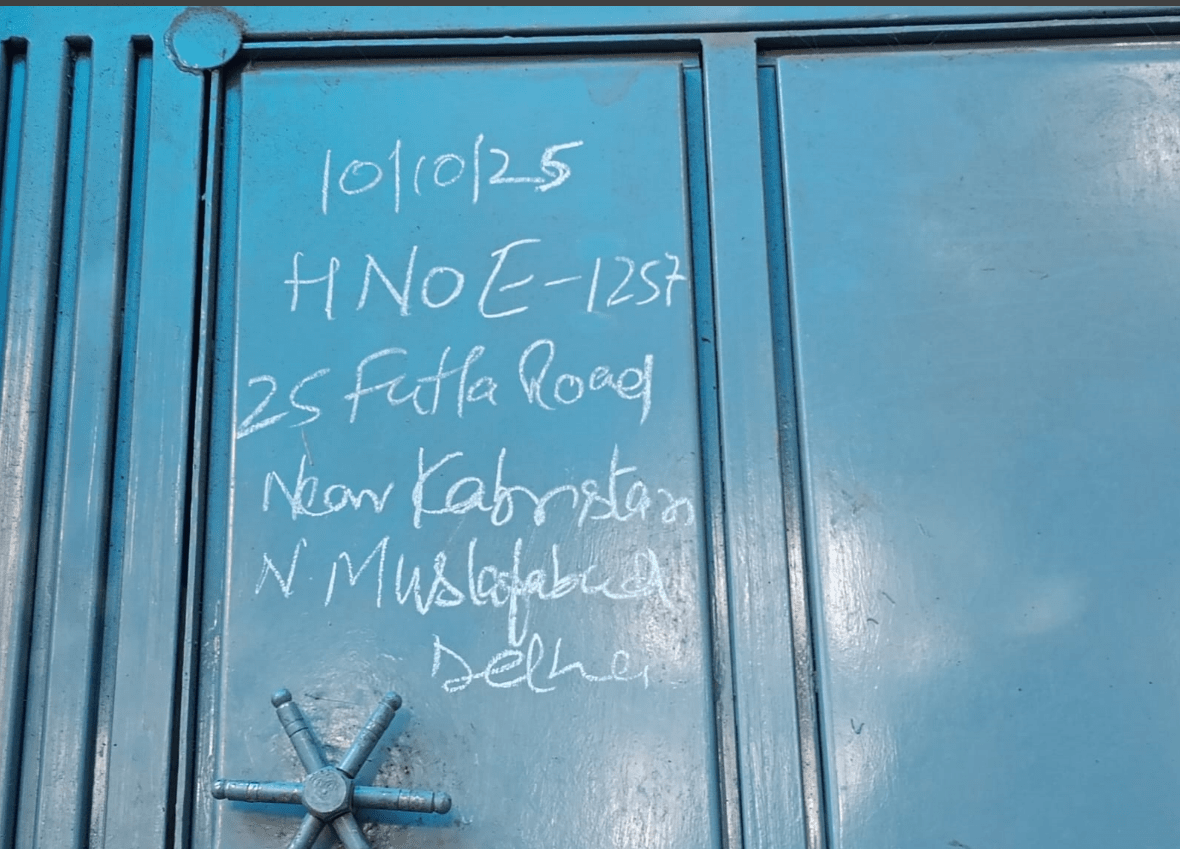 10/10/25
H NO E-1257
25 Futta Road
Near Kabristan
N Mustafabad
Delhi